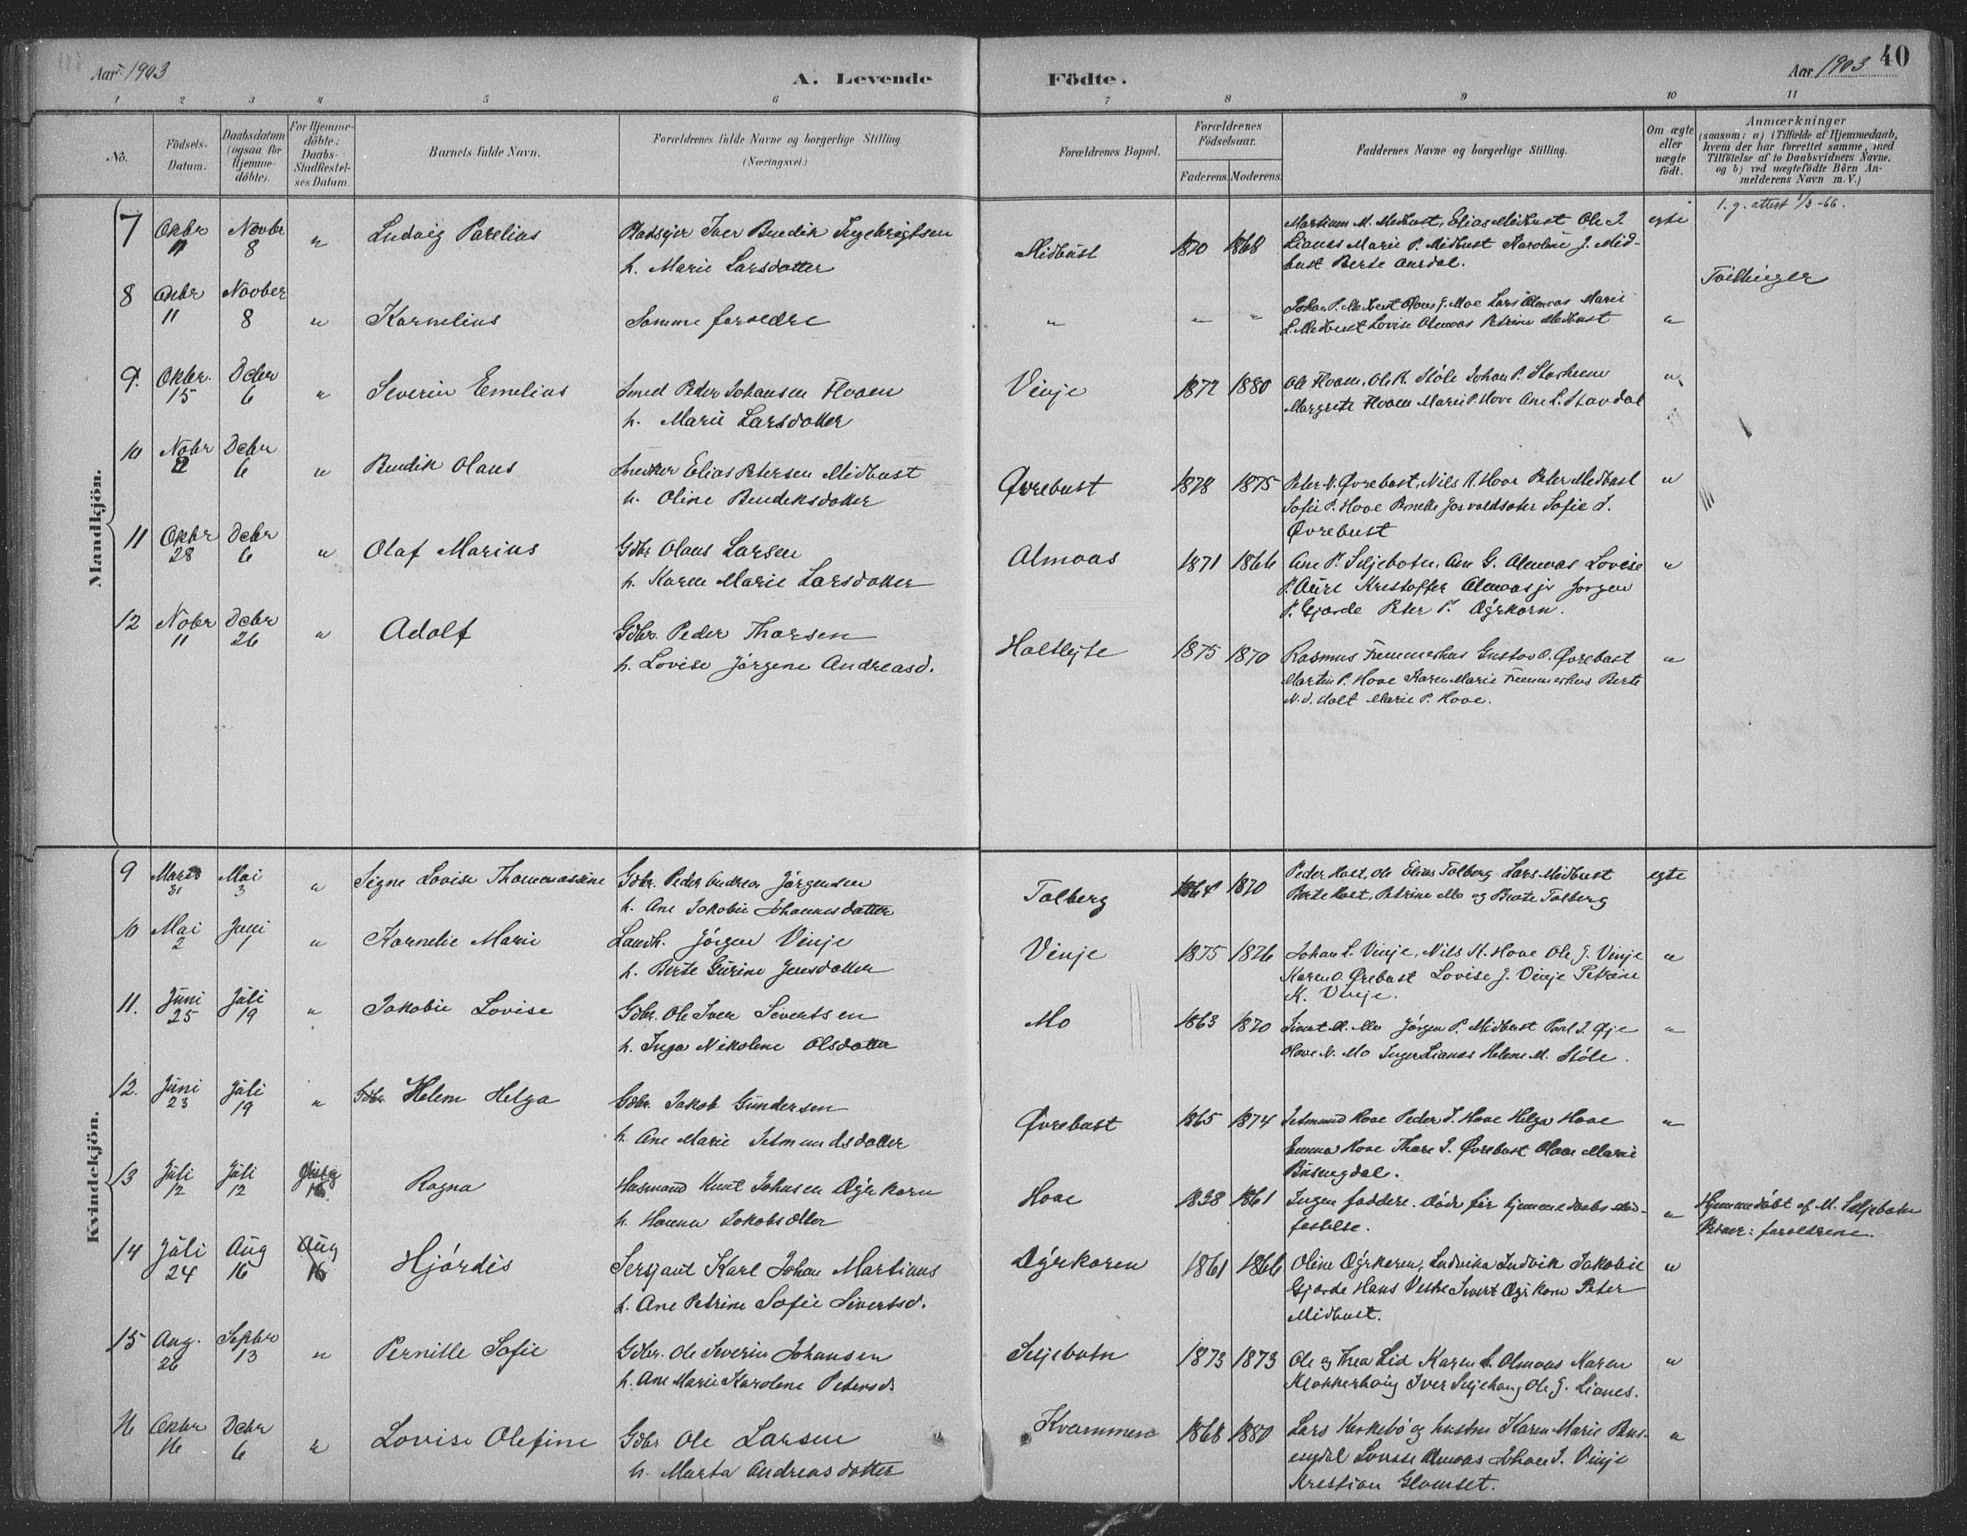 Aar 1903
A. Levende
Födte.
Aar 1903
40
1 2 3 4 5 6 7 8 9 10 11
No.
Födsels-
Datum.
Daabsdatum
(ogsaa for
Hjemme-
döbte).
For Hjemme-
döbte:
Daabs-
Stadfæstel-
ses Datum.
Barnets fulde Navn.
Forældrenes fulde Navne og borgerlige Stilling
(Næringsvei.)
Forældrenes Bopæl.
Forældrenes
Födselsaar.
Faderens. Moderens.
Faddernes Navne og borgerlige Stilling.
Om ægte
eller
uægte
födt.
Anmærkninger
(saasom: a) i Tilfælde af Hjemmedaab,
hvem der har forrettet samme, med
Tilföielse af to Daabsvidners Navne,
og b) ved uægtefödte Börn An-
melderens Navn m.V.)
Mandkjön.
7 Oktbr 11 Novbr 8 " Ludvig Parelius
Pladseier Iver Bendik Ingebrigtsen
h. Marie Larsdatter
Midbust 1870 1868
Martinus M. Midbust, Elias Midbust Ole J.
Lianes Marie P. Midbust Karoline J. Mid-
bust Berte Aurdal.
egte
1. g. attest 1/3-66.
Tvillinger
8 Oktbr 11 Novber 8 " Kornelius
Samme foreldre
" " "
Johan P. Midbust Olaus J. Moe Lars Almaas Marie
L. Midbust Lovise Almaas Petrine Midbust "
9. Oktbr. 15 Dcber 6 " Severin Emelius
Smed Peder Johansen Floen
h. Marie Larsdatter
Vinje 1872 1880
Ole Floen, Ole K. Støle Johan P. Storheim
Margrete Floen Marie P. Hove Ane L. Stavdal "
10 Nobr 2 Dcbr 6 " Bendik Olaus
Snedker Elias Petersen Midbust
h. Oline Bendiksdatter
Øvrebust 1878 1875
Peter N. Øvrebust, Nils K. Hove Peter Midbust
Sofie P. Hove Pernille Josvaldsæter Sofie J.
Øvrebust "
11 Oktbr 28 Dcbr 6 " Olaf Marius
Gdbr. Olaus Larsen
h. Karen Marie Larsdatter
Almaas 1871 1866
Ane P. Seljebotn, Ane G. Almaas Lovise
P. Aure Kristoffer Almaas jr Jørgen
P. Gjærde Peter P. Øgrkorn. "
12 Nobr 11 Dcbr 26 " Adolf
Gdbr. Peder Thorsen
h. Lovise Jørgene Andreasd.
Holtløite 1875 1870
Rasmus Fremmerhus Gustav O. Øvrebust
Martin P. Hove Karen Marie Fremmerhus Berte
N. d. Holt Marie P. Hove. "
Kvindekjön.
9 Marts 31 Mai 3 " Signe Lovise Thomassine
Gdbr. Peder Andreas Jørgensen
h. Ane Jakobie Johannesdatter
Tolberg 1864 1870
Peder Holt, Ole Elias Tolberg Lars Midbust
Berte Holt, Petrine Mo og Beate Tolberg
egte
10 Mai 2 Juni 1 " Kornelie Marie
Landh. Jørgen Vinje
h. Berte Gurine Jensdatter
Vinje 1875 1876
Johan L. Vinje, Nils K. Hove Ole J. Vinje
Karen O. Ørebust Lovise J. Vinje Petrine
K. Vinje. "
11. Juni 25 Juli 19 " Jakobie Lovise
Gdbr. Ole Iver Sivertsen
h. Inga Nikoline Olsdatter
Mo 1863 1870
Sivert M. Mo Jørgen P. Midbust Paul J. Øie
Olave N. Mo Inger Lianes Helene M. Støle. "
12. Juni 23 Juli 19 " Gdbr. Helene Helga
Gdbr. Jakob Gundersen
h. Ane Marie Setmundsdatter
Øvrebust 1865 1874
Setmund Hove Peder S. Hove Helga Hove
Emma Hove Thore J. Øvrebust Olave Marie
Busengdal. "
13 Juli 12 Juli 12 Aug 16. Ragna
Husmand Knut Johnsen Øgrkorn
h. Hanna Jakobsdtter
Hove 1838 1861
Ingen faddere. Døde før hjemmedaabs stad-
festelse. "
Hjemmedøbt af M. Seljebotn
Vidner: foreldrene.
14 Juli 24 Aug 16 Aug 16 Hjørdis
Sersjant Karl Johan Martinus
h. Ane Petrine Sofie Sivertsd.
Øgrkoren 1861 1866
Oline Øgrkoren, Ludvika Ludvik Jakobie
Gjærde Hans Vestre Sivert Øgrkorn Peter
Midbust. "
15 Aug. 26 Septbr 13 " Pernille Sofie
Gdbr. Ole Severin Johansen
h. Ane Marie Karolene Petersd.
Seljebotn 1873 1873
Ole og Thea Lid Karen L. Almaas Karen
Klokkerhaug Iver Seljehaug Ole J. Lianes. "
16 Oktbr 16 Dcbr 6 " Lovise Olefine
Gdbr Ole Larsen
h. Marta Andreasdatter
Kvammen 1868 1880
Lars Kirkebø og hustru Karen Marie Bus-
engdal Lovise Almaas Johan J. Vinje
Kristian Glomset. "